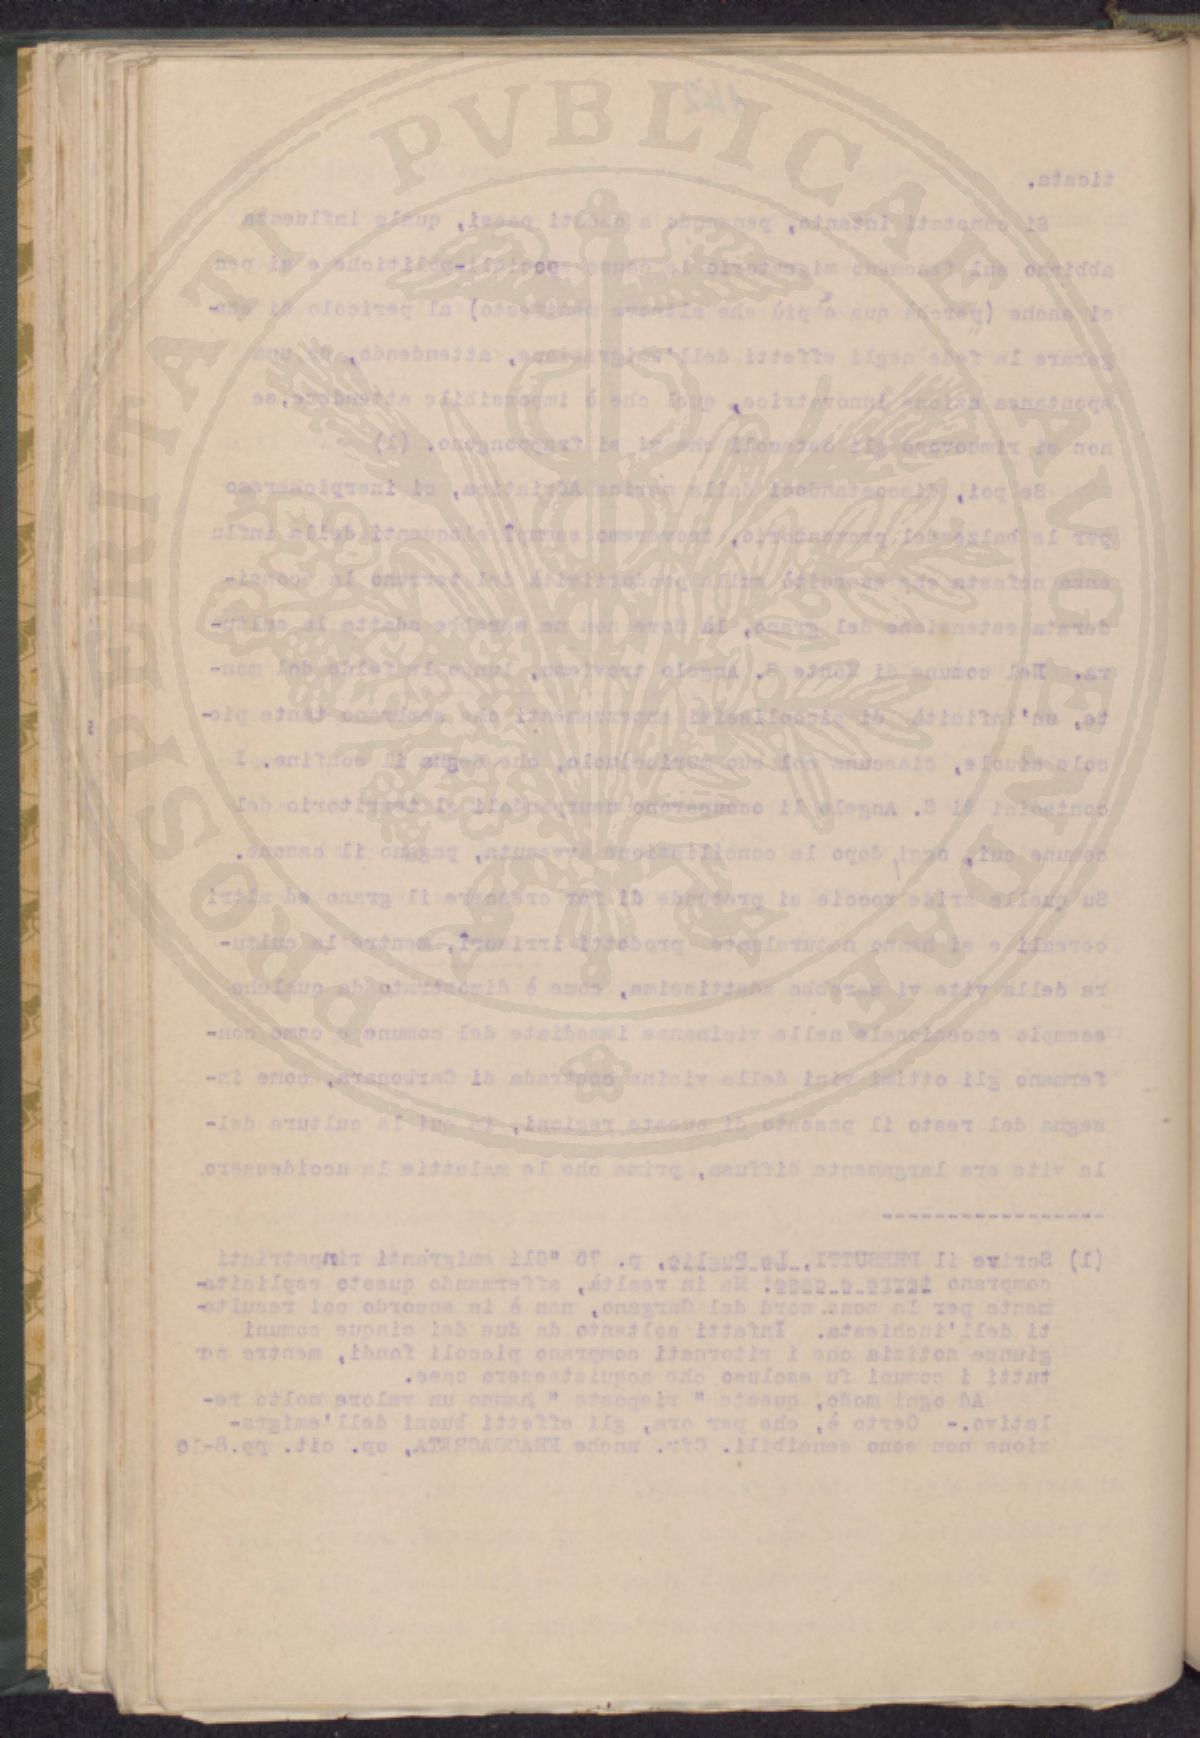 PROSPERITATI PVBLICAE AVGENDAE
142
ticata.
Si constati intanto, pensando a questi paesi, quale influenza
abbiano sul fenomeno migratorio le cause sociali-politiche e si pen
si anche (perchè qua e più che altrove manifesto) al pericolo di esa-
gerare la fede negli effetti dell'emigrazione, attendendo, da una
spontanea azione innovatrice, quel che è impossibile attendere, se
non si rimuovono gli ostacoli che vi si frappongono. (1)
Se poi, discostandoci dalla marina Adriatica, ci inerpicheremo
per le balze del promontorio, troveremo esempî eloquenti della influ
enza nefasta che esercitò sulla produttività del terreno la sconsi-
derata estensione del grano, là dove non ne sarebbe adatta la cultu-
ra. Nel comune di Monte S. Angelo troviamo, lungo le falde del mon-
te, un'infinità di piccolissimi appezzamenti che sembrano tante pic-
cole aiuole, ciascuna col suo muricciuolo, che segna il confine. I
contadini di S. Angelo li occuparono usurpandoli al territorio del
comune cui, oggi, dopo la conciliazione avvenuta, pagano il canone.
Su quelle aride roccie si pretende di far crescere il grano ed altri
cereali e si hanno naturalmente prodotti irrisorî, mentre la cultu-
ra della vite vi sarebbe adattissima, come è dimostrato da qualche
esempio eccezionale nelle vicinanze immediate del comune e come con-
fermano gli ottimi vini della vicina contrada di Carbonara, come in-
segna del resto il passato di queste regioni, in cui la cultura del-
la vite era largamente diffusa, prima che le malattie la uccidessero.
-----------------
(1) Scrive il PRESUTTI, Le Puglie, p. 75 "Gli emigranti rimpatriati
comprano terre e case! Ma in realtà, affermando questo esplicita-
mente per la zona nord del Gargano, non è in accordo coi resulta-
ti dell'inchiesta. Infatti soltanto da due dei cinque comuni
giunse notizia che i ritornati comprano piccoli fondi, mentre per
tutti i comuni fu escluso che acquistassero case.
Ad ogni modo, queste " risposte " hanno un valore molto re-
lativo.- Certo è, che per ora, gli effetti buoni dell'emigra-
zione non sono sensibili. Cfr. anche FRACCACRETA, op. cit. pp.8-10